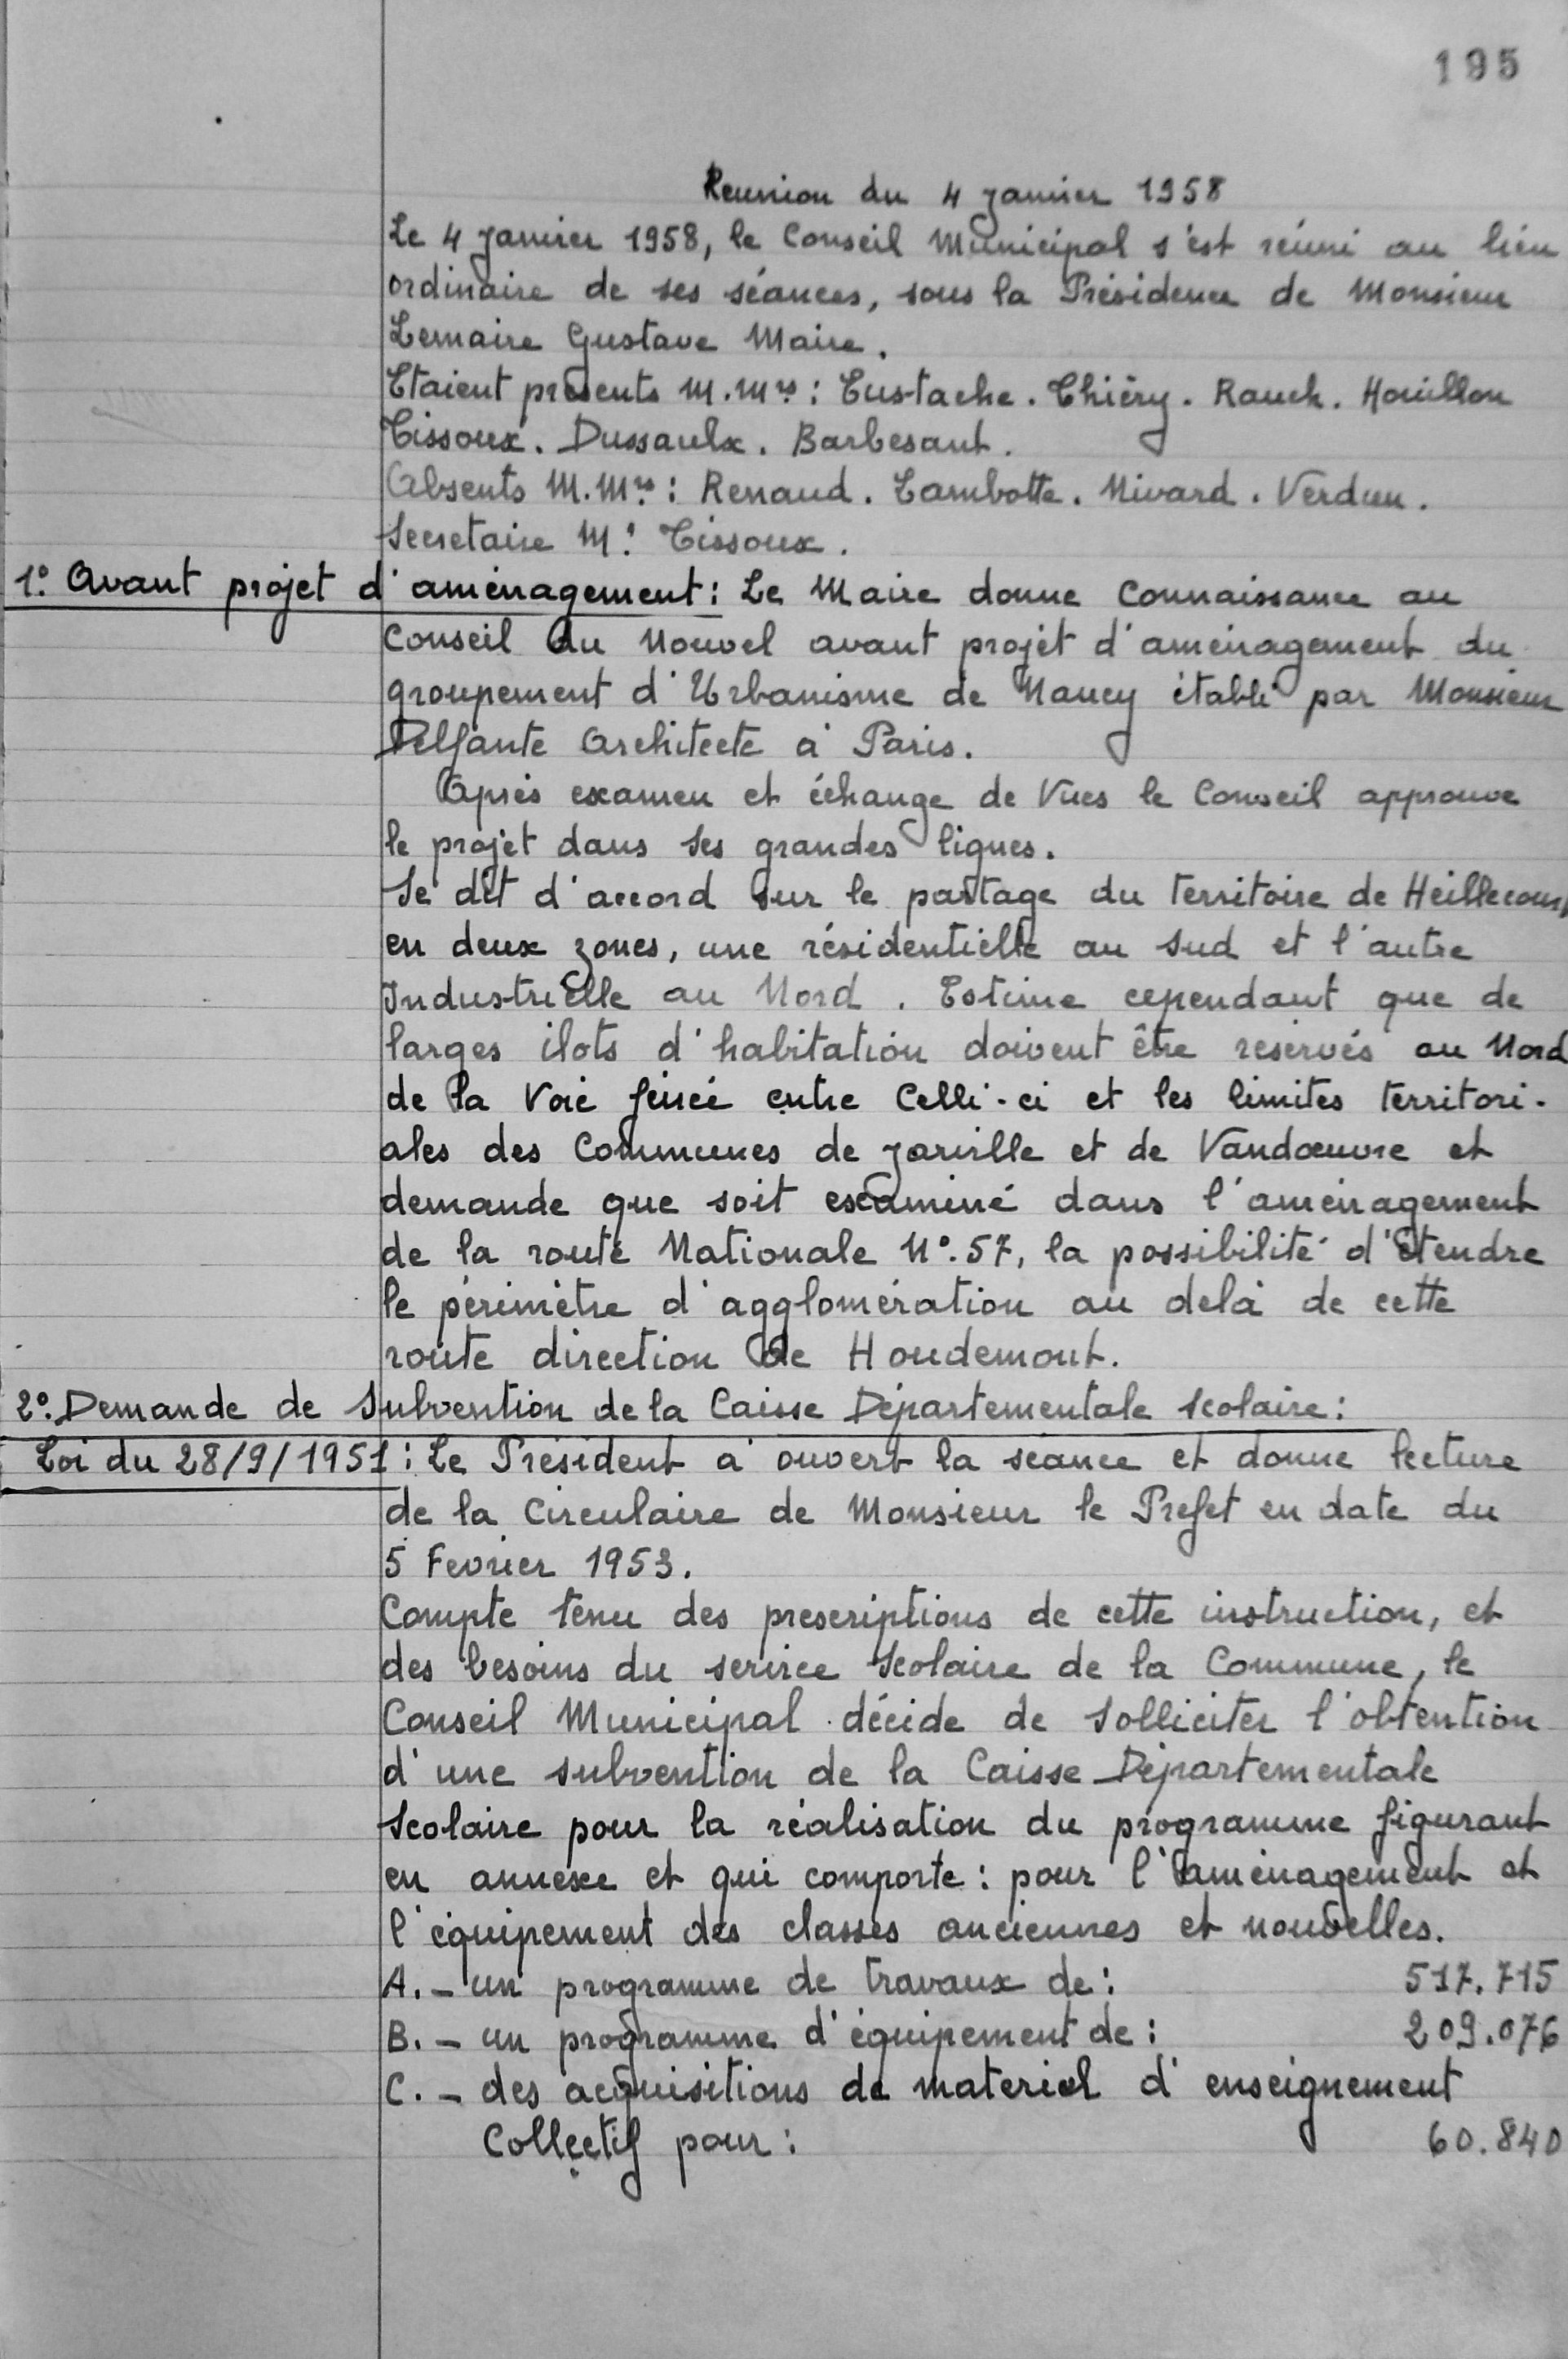 195
Reunion du 4 Janvier 1958
Le 4 Janvier 1958, le Conseil Municipal s'est réuni au lieu
ordinaire de ses séances, sous la Présidence de Monsieur
Lemaire Gustave Maire.
Etaient présents M.Mrs : Eustache. Thiéry. Rauch. Houillon
Tissoux. Dussaulx. Barbesant.
Absents M.Mrs : Renaud. Lambotte. Nivard. Verdun.
Secretaire Mr Tissoux.
1° Avant projet d'aménagement : Le Maire donne Connaissance au
Conseil du Nouvel avant projet d'aménagement du
groupement d'Urbanisme de Nancy établi par Monsieur
Delfante Architecte à Paris.
Après examen et échange de Vues le Conseil approuve
le projet dans ses grandes lignes.
Se dit d'accord sur le partage du territoire de Heillecourt
en deux zones, une résidentielle au Sud et l'autre
Industrielle au Nord. Estime cependant que de
larges ilots d'habitation doivent être reservés au Nord
de la Voie ferrée entre Celle-ci et les limites territori-
ales des Communes de Jarville et de Vandœuvre et
demande que soit examiné dans l'aménagement
de la route Nationale N°.57, la possibilité d'étendre
le périmètre d'agglomération au delà de cette
route direction de Houdemont.
2° Demande de Subvention de la Caisse Départementale Scolaire :
Loi du 28/9/1951 : Le Président a ouvert la séance et donne lecture
de la Circulaire de Monsieur le Prefet en date du
5 Fevrier 1953.
Compte tenu des prescriptions de cette instruction, et
des besoins du service Scolaire de la Commune, le
Conseil Municipal décide de Solliciter l'obtention
d'une subvention de la Caisse Départementale
Scolaire pour la réalisation du programme figurant
en annexe et qui comporte : pour l'aménagement et
l'équipement des classes anciennes et nouvelles.
A. - un programme de travaux de : 517.715
B. - un programme d'équipement de : 209.076
C. - des acquisitions de materiel d'enseignement
Collectif pour : 60.840